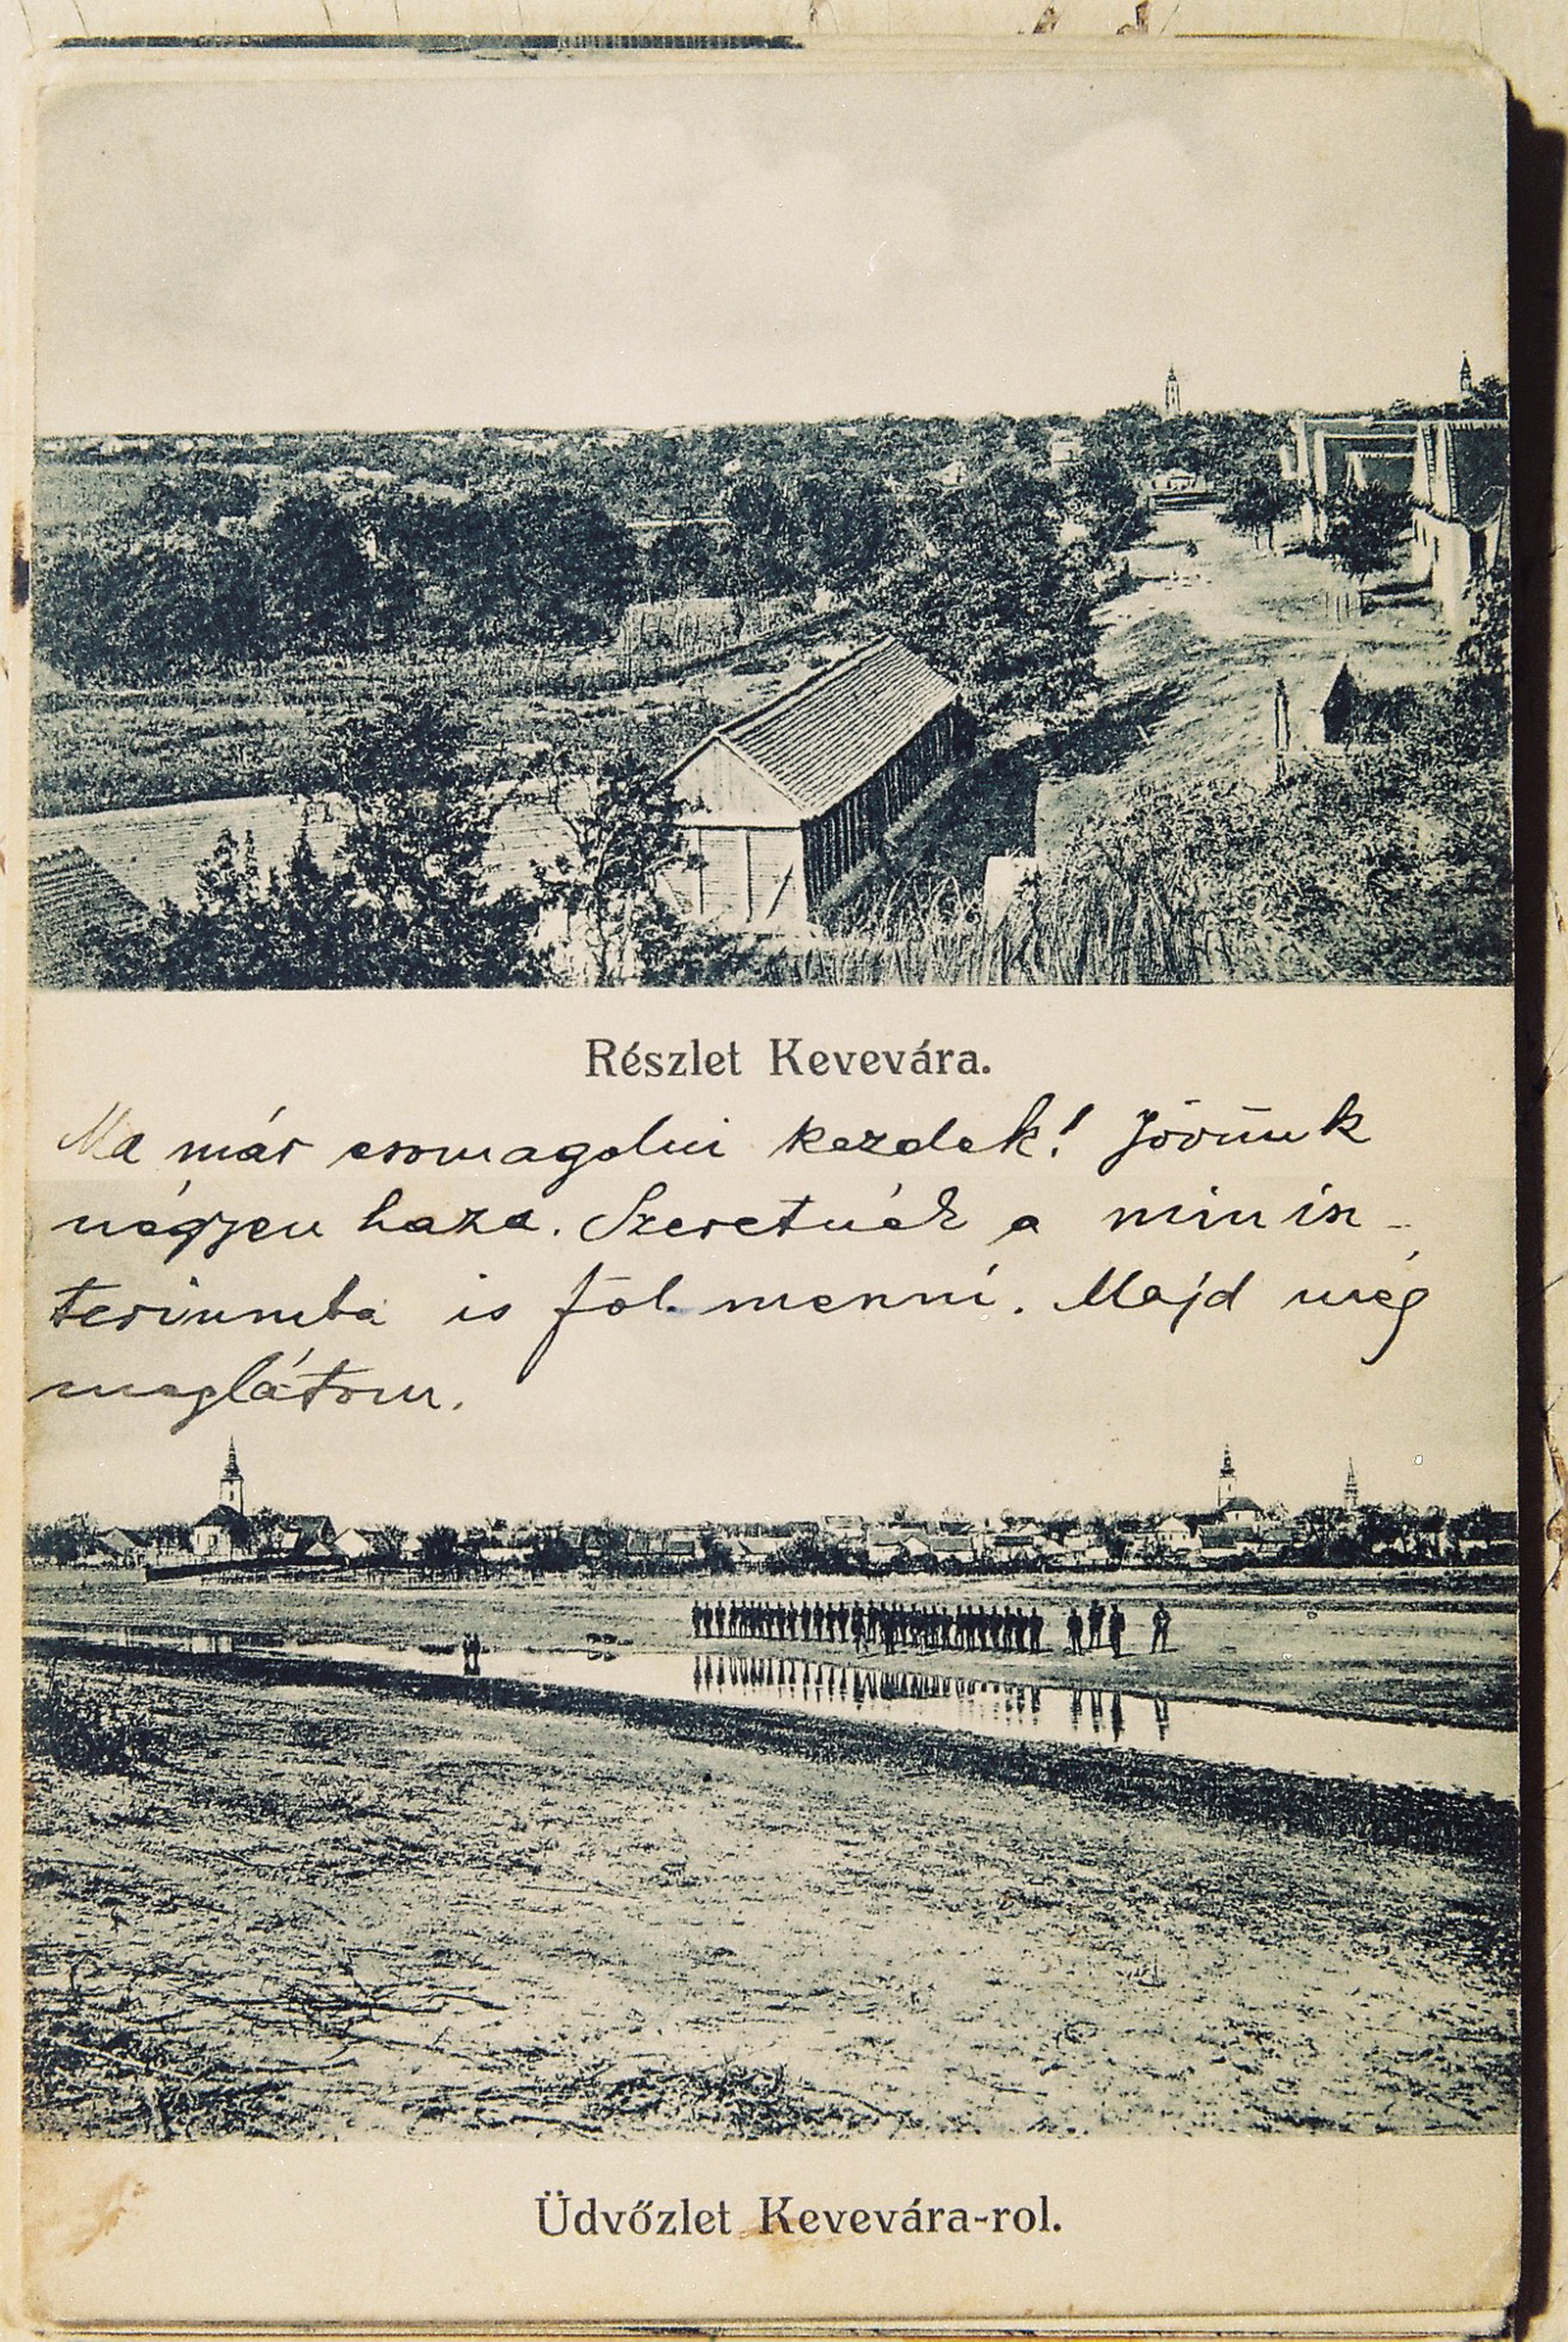 Részlet Kevevára.
Ma már csomagolni kezdek! Jövünk
négyen haza. Szeretnék a minis-
teriumba is föl menni. Majd még
meglátom.
Üdvőzlet Kevevára-rol.